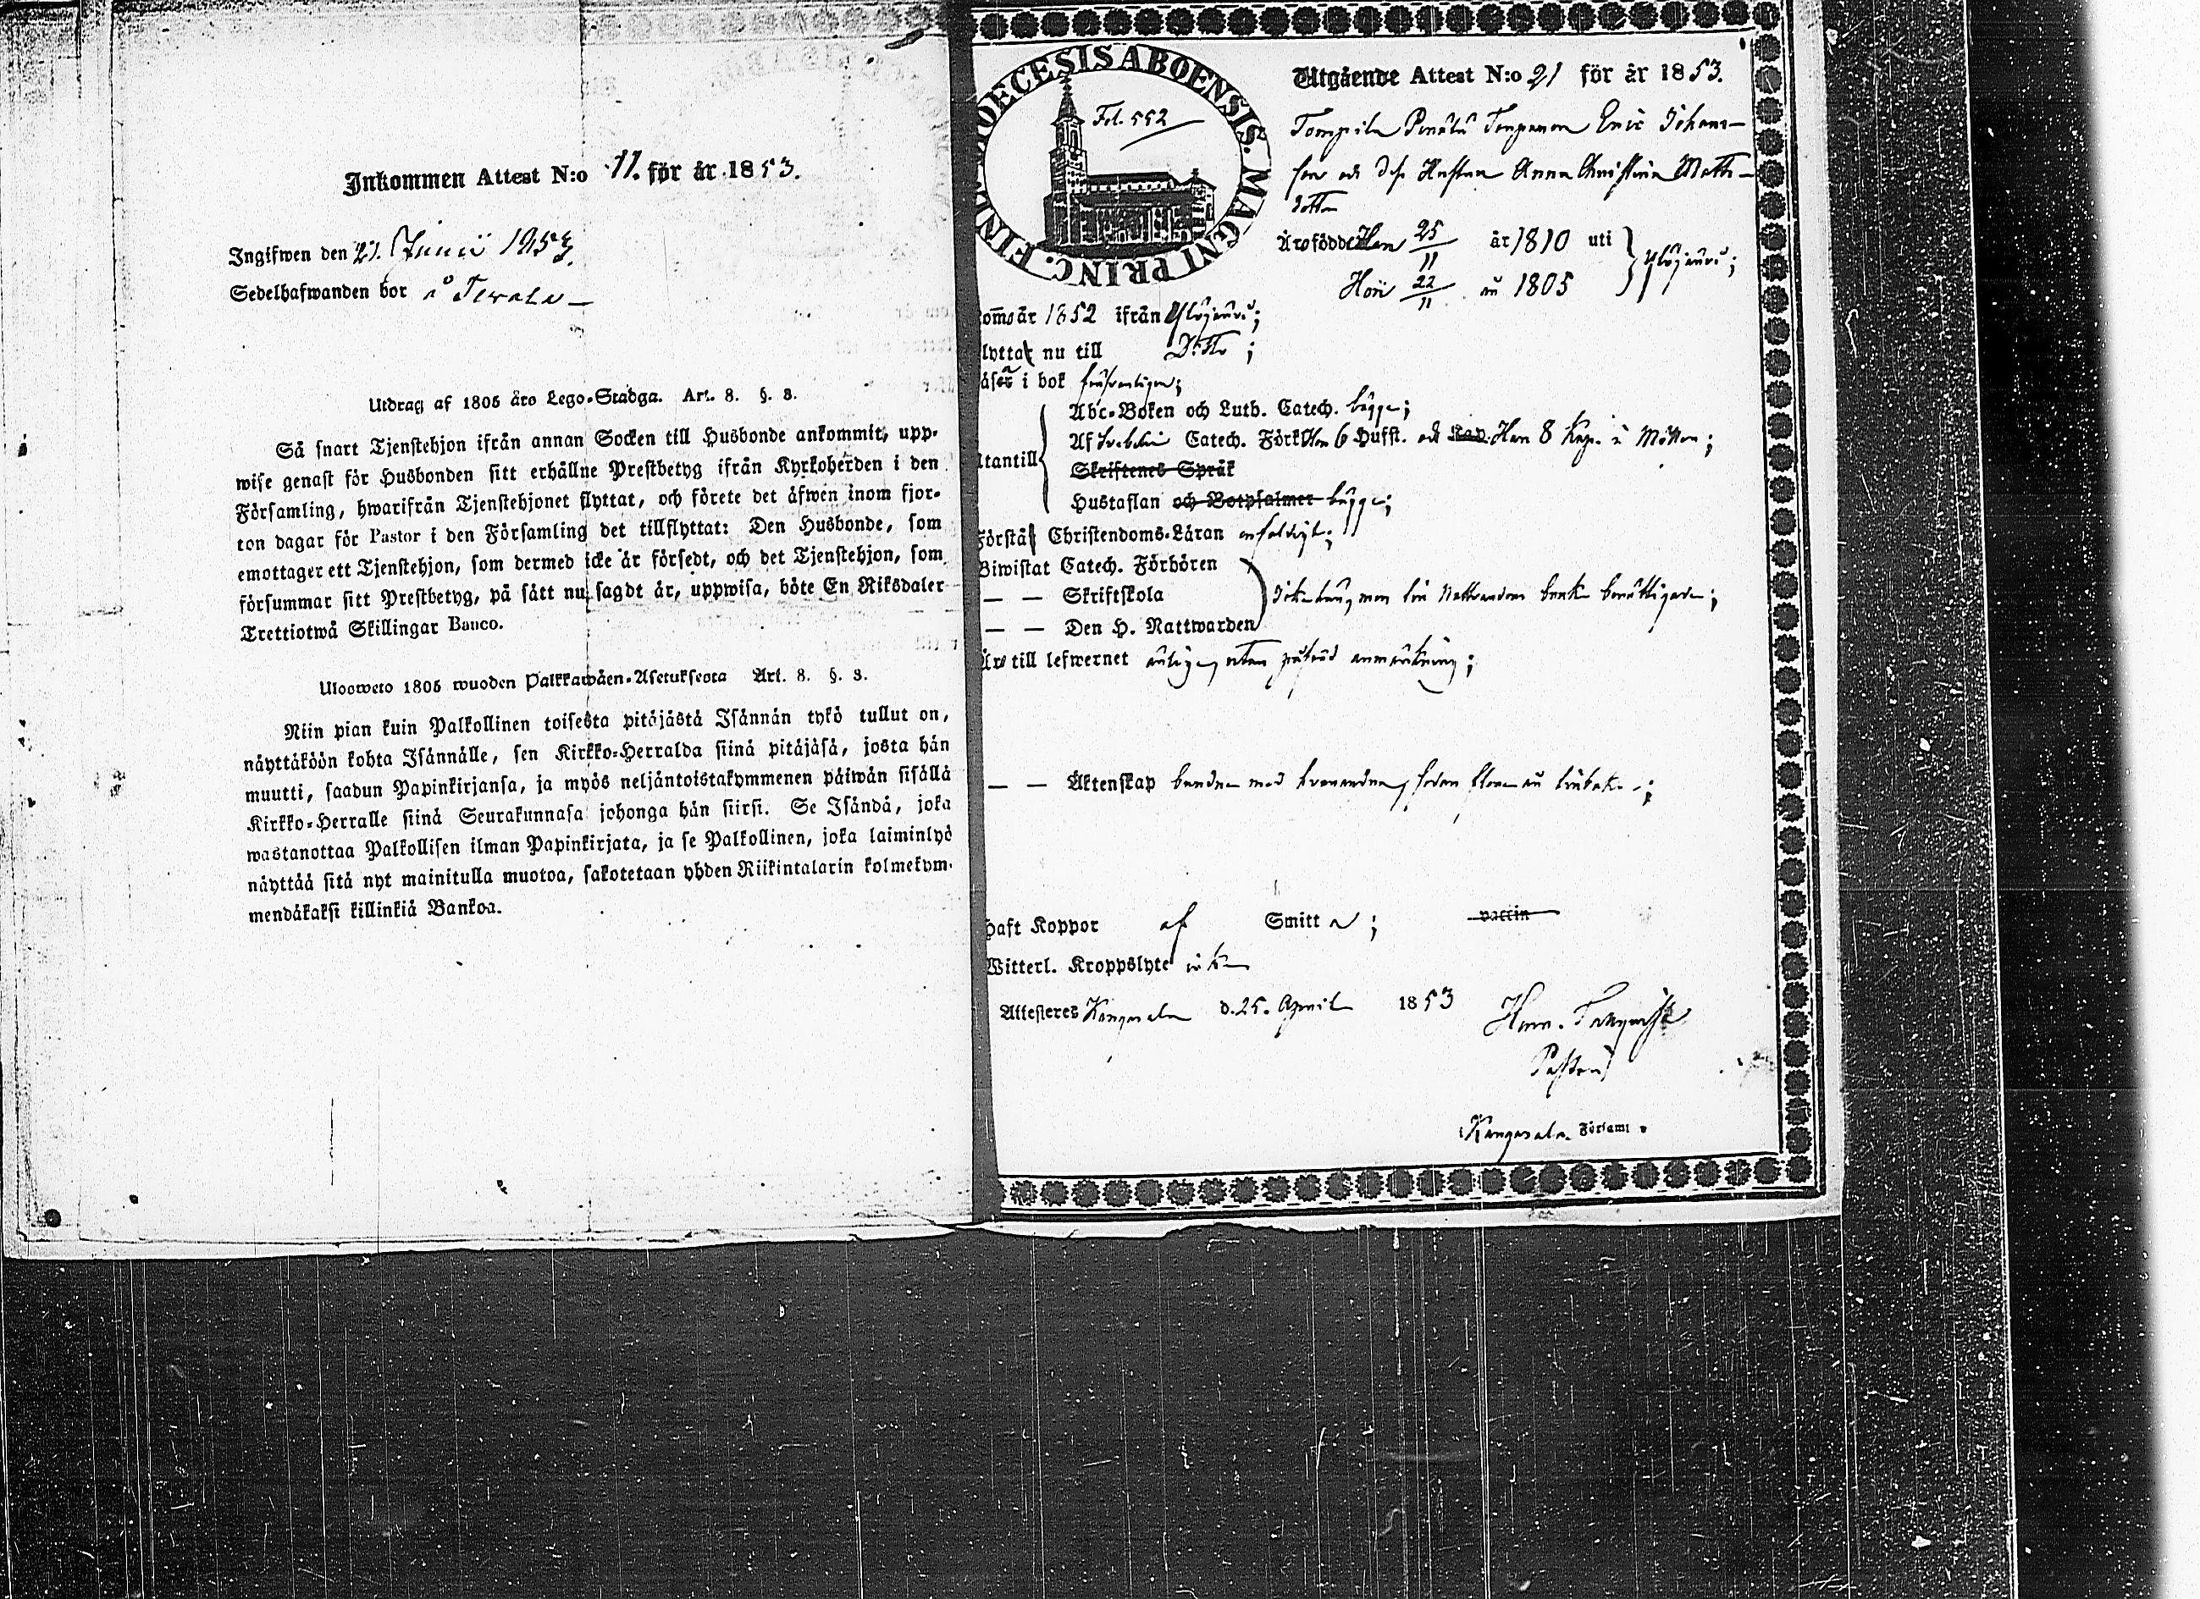 Inkommen Attest N:o 11. för år 1853.
Ingifwen den 21. Junii 1853.
Sedelhafwanden bor å
Utdrag af 1805 års Lego-Stadga. Art. 8. §. 3.
Så snart Tjenstehjon ifrån annan Socken till Husbonde ankommit, upp-
wise genast för Husbonden sitt erhållne Prestbetyg ifrån Kyrkoherden i den
Församling, hwarifrån Tjenstehjonet flyttat, och förete det äfwen inom fjor-
ton dagar för Pastor i den Församling det tillflyttat: Den Husbonde, som
emottager ett Tjenstehjon, som dermed icke är försedt, och det Tjenstehjon, som
försummar sitt Prestbetyg, på sätt nu sagdt är, uppwisa, böte En Riksdaler
Trettiotwå Skillingar Banco.
Uloosweto 1805 wuoden Palkkawäen-Asetuksesta Art. 8. §. 3.
Niin pian kuin Palkollinen toisesta pitäjästä Isännän tykö tullut on,
näyttäköön kohta Isännälle, sen Kirkko-Herralda siinä pitäjäsä, josta hän
muutti, saadun Papinkirjansa, ja myös neljäntoistakymmenen päiwän sisällä
Kirkko-Herralle siinä Seurakunnasa johonga hän siirsi. Se Isändä, joka
wastanottaa Palkollisen ilman Papinkirjata, ja se Palkollinen, joka laiminlyö
näyttää sitä nyt mainitulla muotoa, sakotetaan yhden Riikintalarin kolmekym-
mendäkaksi killinkiä Bankoa.
DIOECESIS ABOENSIS. MAGNI PRINC. FINL.
Fol. 552
Utgående Attest N:o 21 för år 1853.
Tompila Eric Johans-
son och dess Hustru Anna Christina Matts-
dotter
Äro födde Han 25/11 år 1810 uti Ylöjärvi;
Hon 22/11 år 1805
koms år 1852 ifrån Ylöjärvi;
flyttar nu till Ditto;
läsa i bok försvarligen;
Utantill
Abc-Boken och Luth. Catech. begge;
Af Svebilii Catech. Förkl. Hon 6 Hufst. och Han 8 Kap.
Skriftenes Språk
Hustaflan och Botpsalmer begge;
Förstå Christendoms-Läran enfaldigt;
Biwistat Catech. Förhören
— — Skriftskola
— — Den H. Nattwarden
Äro till lefwernet ärlige, utan anmärkning;
— — Äktenskap
Haft Koppor af Smitta; vaccin
Witterl. Kroppslyte icke
Attesteres Kangasala d. 25. April 1853
Pastor
Kangasala Församl.